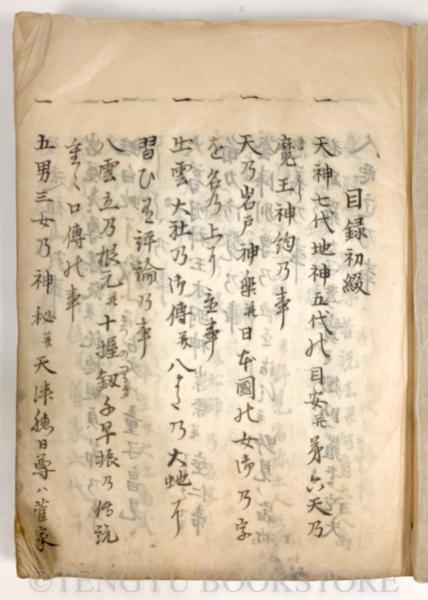 目録初綴
一 天神七代地神五代の目安并第六天乃
魔王神約乃事
一 天乃岩戸神楽并日本國の女帝乃字
を名乃上り 事
一 出雲大社乃御傳并八また乃大蛇 
習ひ 評論乃事
一 八雲立乃根元并十握釼千早振乃傳説
重々口傳の事
一 五男三女乃神秘并天津穂日尊ハ菅家
©TENGYU BOOKSTORE